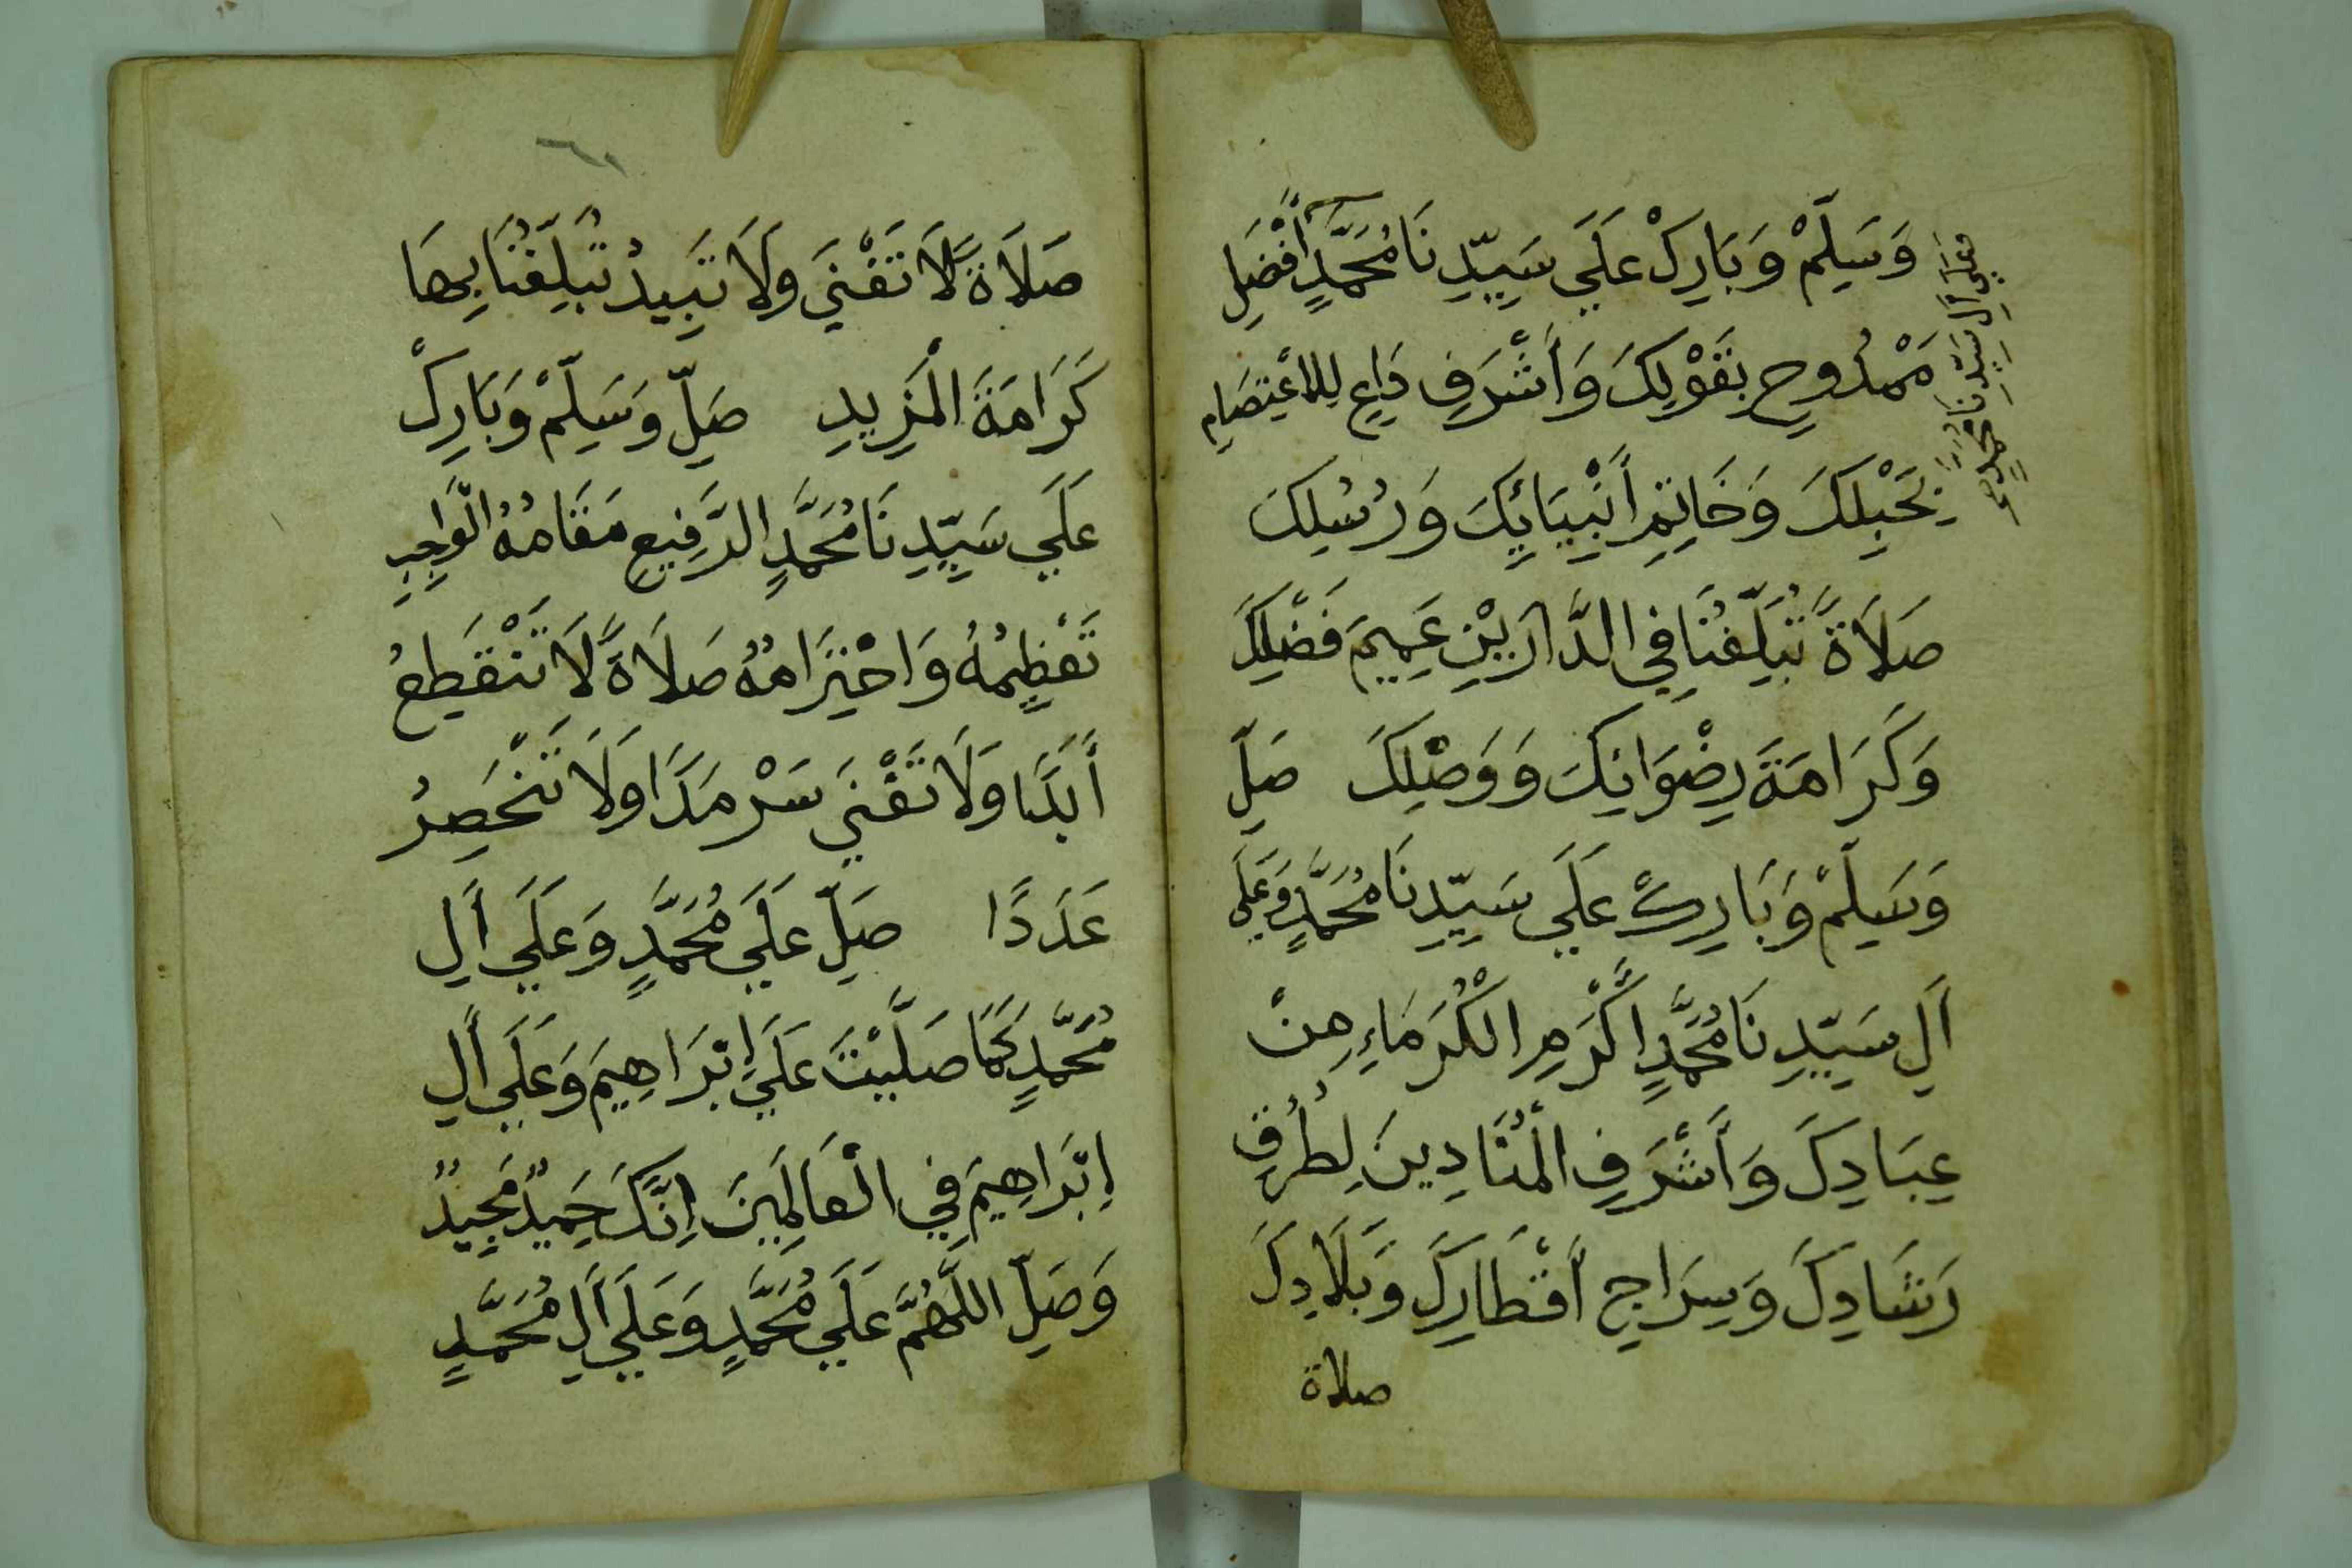 وَسَلِّمْ وَبَارِكْ عَلَي سَيِّدِنَا مُحَمَّدٍ أَفْضَلِ
وعلي آل سيدنا محمد صح
مَمْدُوحٍ بِقَوْلِكَ وَأَشْرَفِ دَاعٍ لِلاعْتِصَامِ
بِحَبْلِكَ وَخَاتِمِ أَنْبِيَائِكَ وَرُسُلِكَ
صَلَاةً تُبَلِّغُنَا فِي الدَّارَيْنِ عَمِيمَ فَضْلِكَ
وَكَرَامَةَ رِضْوَانِكَ وَوَصْلِكَ صَلِّ
وَسَلِّمْ وَبَارِكْ عَلَي سَيِّدِنَا مُحَمَّدٍ وَعَلَي
آلِ سَيِّدِنَا مُحَمَّدٍ اَكْرَمِ الْكُرَمَاءِ مِنْ
عِبَادِكَ وَأَشْرَفِ الْمُنَادِينَ لِطُرُقِ
رَشَادِكَ وَسِرَاجِ أَقْطَارِكَ وَبَلَادِكَ
صلاة
٦١
صَلَاةً لَا تَفْنَي وَلَا تَبِيدُ تُبَلِّغُنَا بِهَا
كَرَامَةَ الْمَزِيدِ صَلِّ وَسَلِّمْ وَبَارِكْ
عَلَي سَيِّدِنَا مُحَمَّدٍ الرَّفِيعِ مَقَامُهُ الْوَاجِبِ
تَعْظِيمُهُ وَاحْتِرَامُهُ صَلَاةً لَا تَنْقَطِعُ
أَبَدًا وَلَا تَفْنَي سَرْمَدًا وَلَا تَنْحَصِرُ
عَدَدًا صَلِّ عَلَي مُحَمَّدٍ وَعَلَي آلِ
مُحَمَّدٍ كَمَا صَلَّيْتَ عَلَي إِبْرَاهِيمَ وَعَلَي آلِ
إِبْرَاهِيمَ فِي الْعَالَمِينَ إِنَّكَ حَمِيدٌ مَجِيدٌ
وَصَلِّ اللَّهُمَّ عَلَي مُحَمَّدٍ وَعَلَي آلِ مُحَمَّدٍ